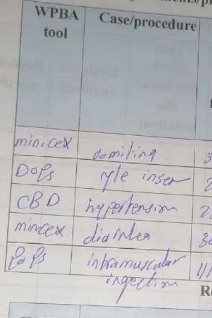 WPBA Case/procedure
tool
minicex vomiting
DOPs ryle inser
CBD hypertension
mincex diarrhea
DOPs intramuscular
ingection